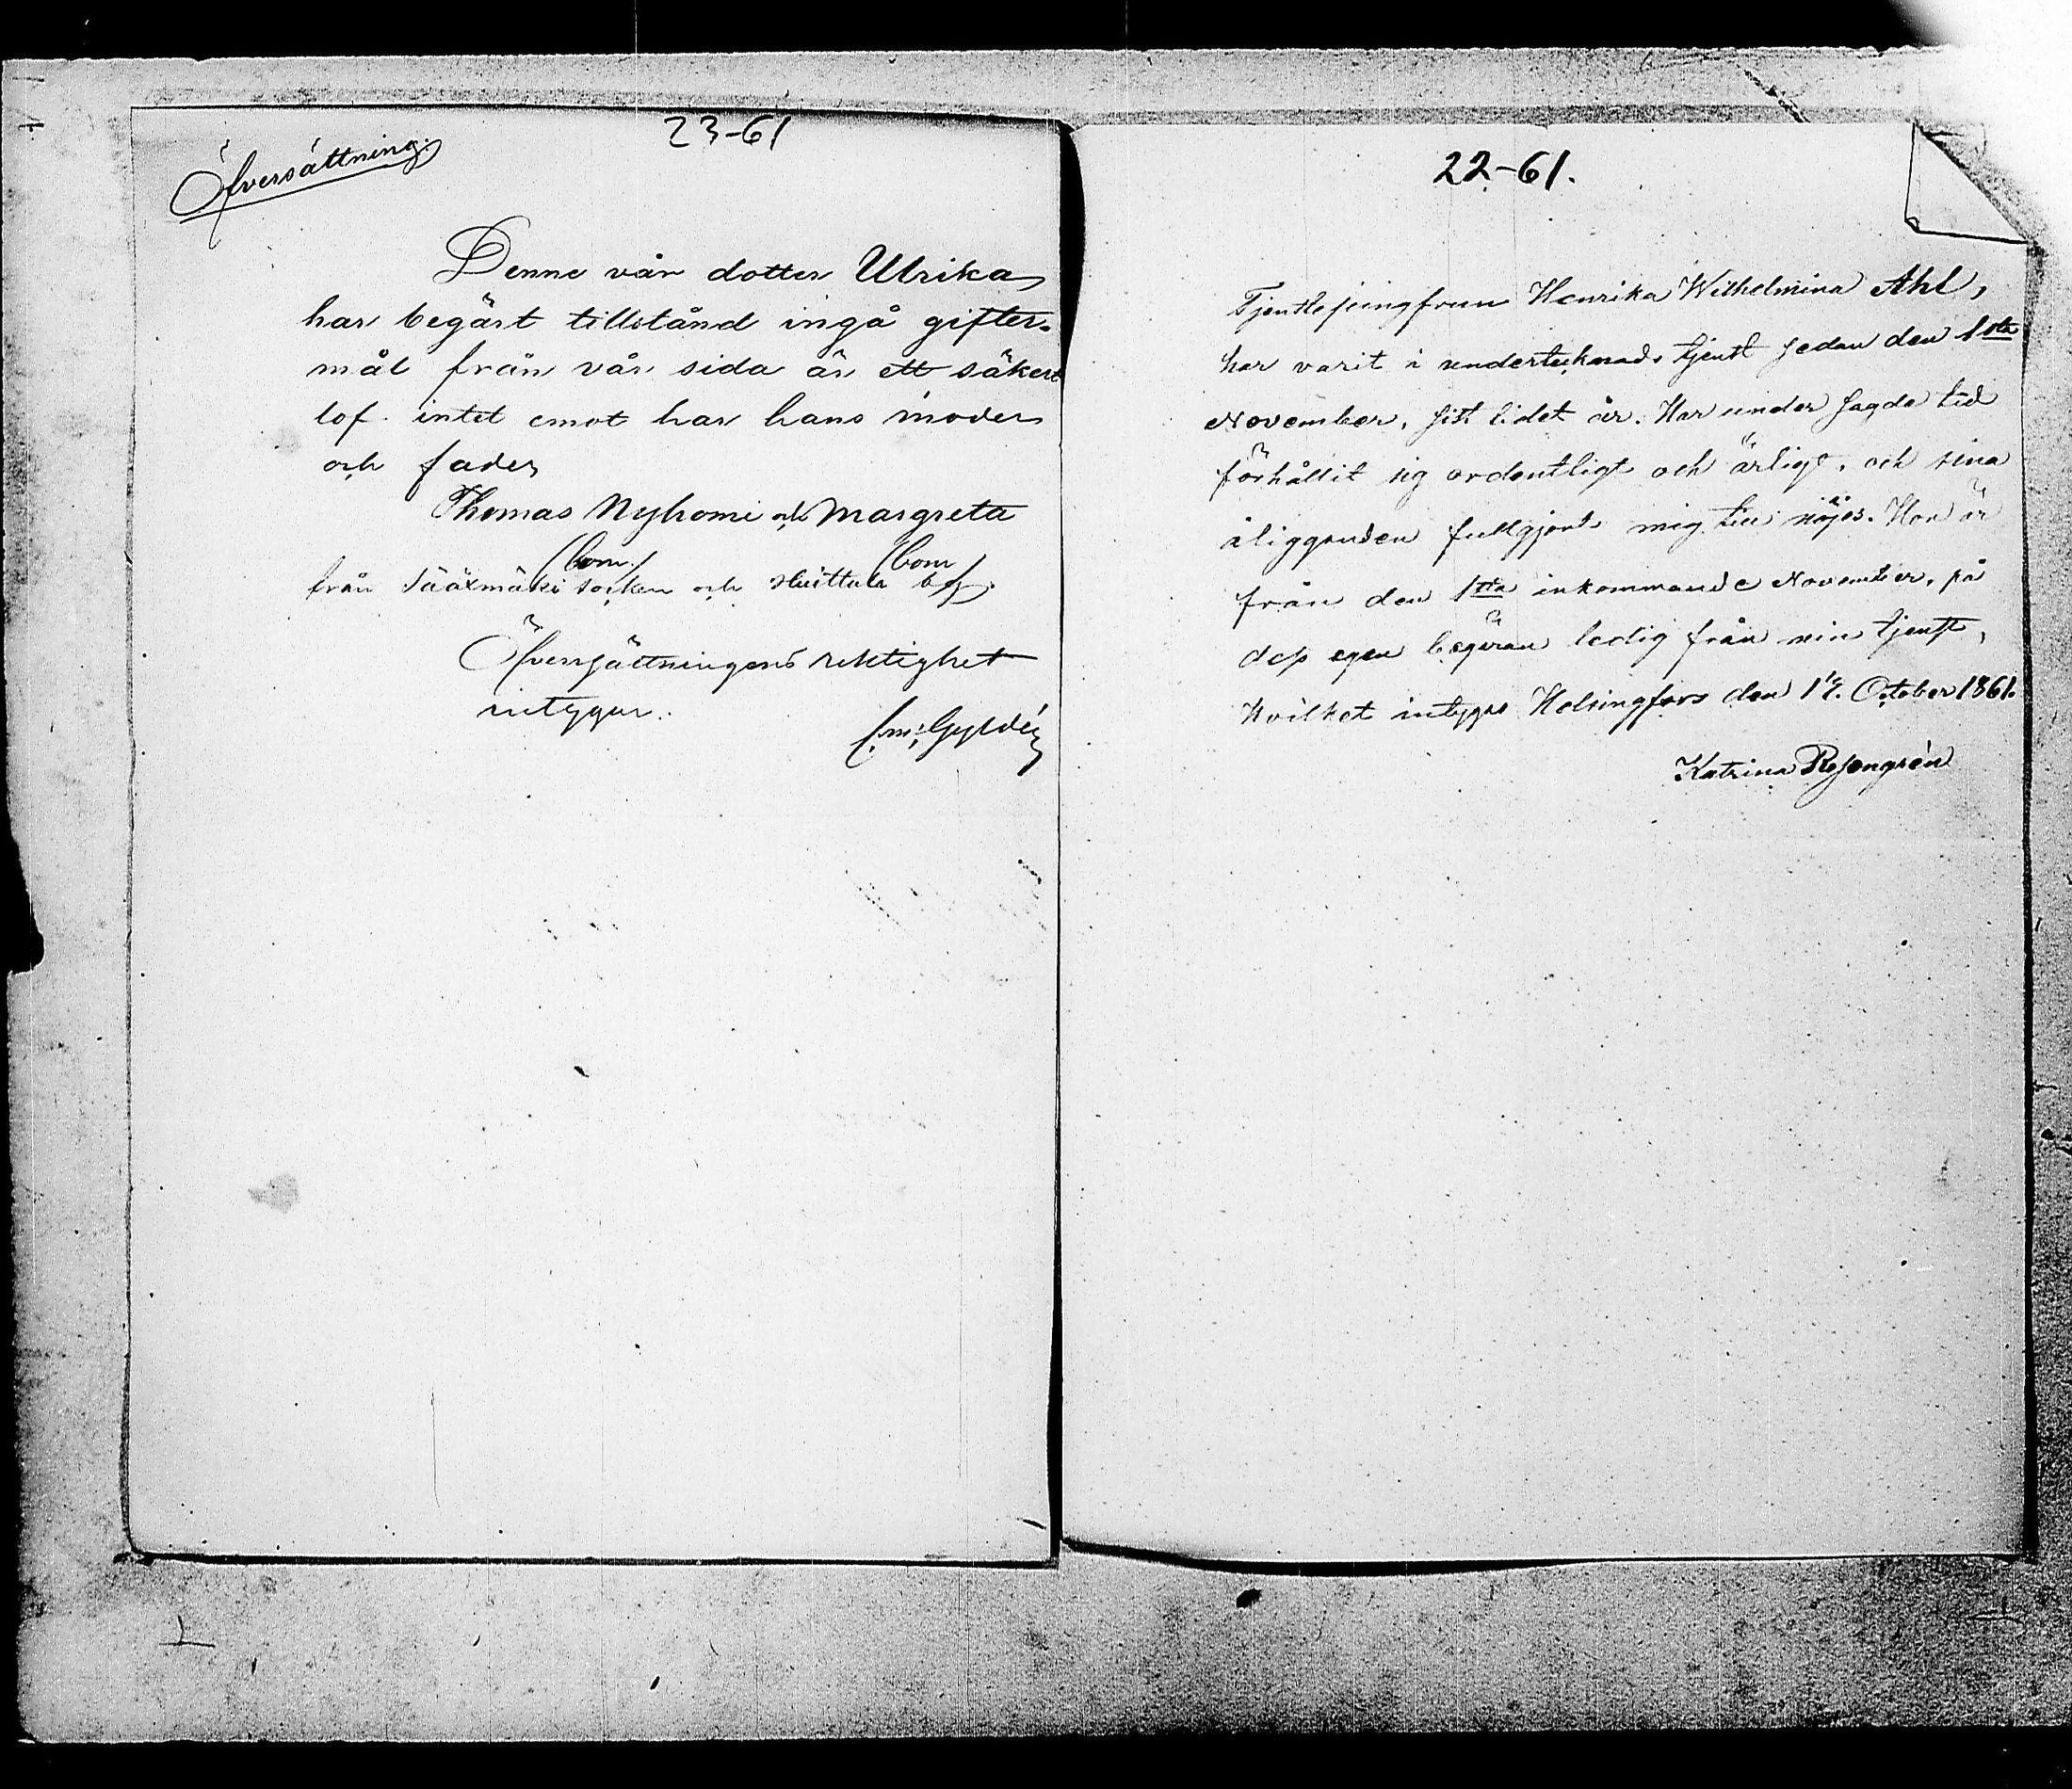 23-61
Öfversättning.
Denne vår dotter Ulrika
har begärt tillstånd ingå gifter-
mål från vår sida är ett säkert
lof. intet emot har hans moder
och fader
Thomas Nyhomi och Margreta
(bom.) (bom)
från Sääxmäki socken och Huittula by.
Öfversättningens riktighet
intygar.
C. M. Gyldén
22-61.
Tjenstejungfrun Henrika Wilhelmina Ahl,
har varit i undertecknads tjenst sedan den 1sta
November, sist lidet år. Har under sagde tid
förhållit sig ordentligt och ärligt, och sina
åligganden fullgjort mig till nöjes. Hon är
från den 1sta inkommande November, på
dess egen begäran ledig från min tjenst,
Hvilket intygas Helsingfors den 1. October 1861.
Katrina Rosengrén